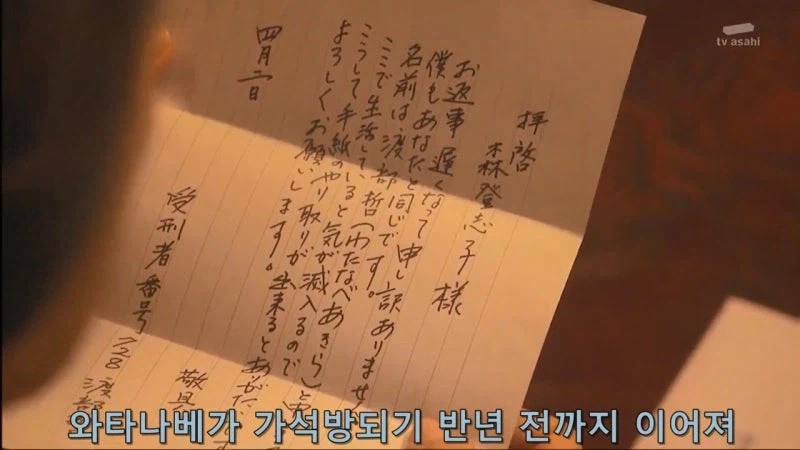 tv asahi
拝啓
森登志子様
お返事遅くなって申し訳ありません
僕もあなたと同じです。
名前は渡部哲(わたなべあきら)と
ここで生活していると気が滅入るので
こうして手紙のやり取りが出来るとありがた
よろしくお願いします。
敬具
四月二日
受刑者番号728 渡部
와타나베가 가석방되기 반년 전까지 이어져